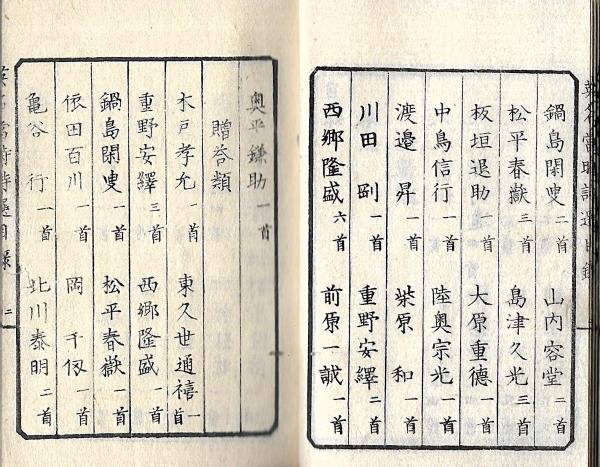 鍋島閑叟 二首 山内容堂 二首
松平春嶽 三首 島津久光 三首
板垣退助 一首 大原重德 一首
中島信行 一首 陸奧宗光 一首
渡邉昇 一首 柴原和 一首
川田剛 一首 重野安繹 二首
西鄉隆盛 六首 前原一誠 一首
奥平鎌助 一首
贈答類
木戸孝允 一首 東久世通禧 一首
重野安繹 三首 西鄉隆盛 一首
鍋島閑叟 一首 松平春嶽 一首
依田百川 一首 岡千仭 一首
亀谷行 一首 北川泰明 二首
二